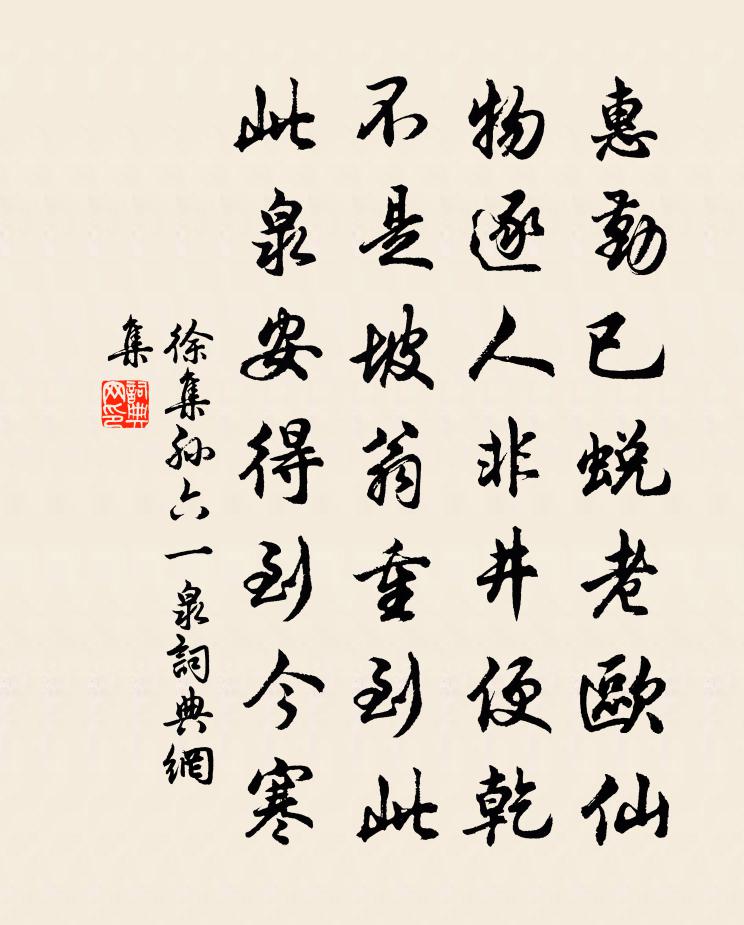 惠勤已蛻老歐仙
物逐人非井便乾
不是坡翁重到此
此泉安得到今寒
徐集孫六一泉詞典網
集
詞典
网印